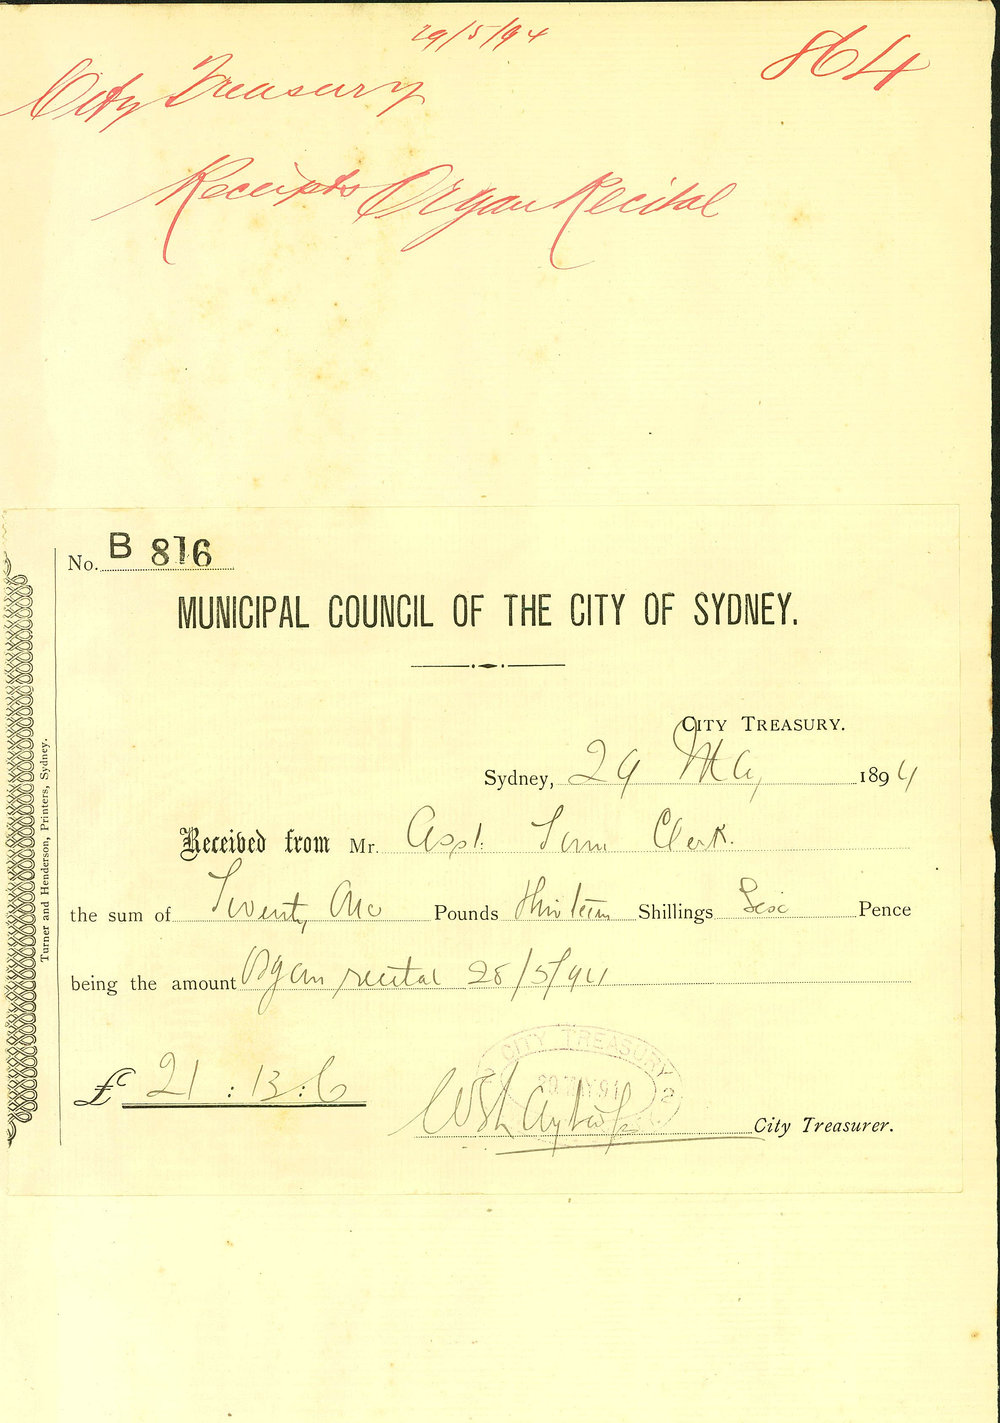 29/5/94
864
City Treasury
Receipts Organ Recital
No. B 816
MUNICIPAL COUNCIL OF THE CITY OF SYDNEY.
CITY TREASURY.
Sydney, 29 May 1894
Received from Mr. Asst. Town Clerk.
the sum of Twenty One Pounds Thirteen Shillings Six Pence
being the amount Organ recital 28/5/94
£ 21 : 13 : 6
CITY TREASURY
City Treasurer.
Turner and Henderson, Printers, Sydney.